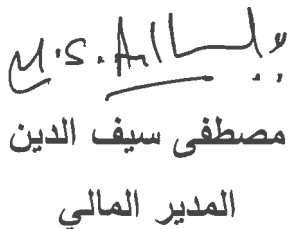 مصطفى سيف الدين
المدير المالي